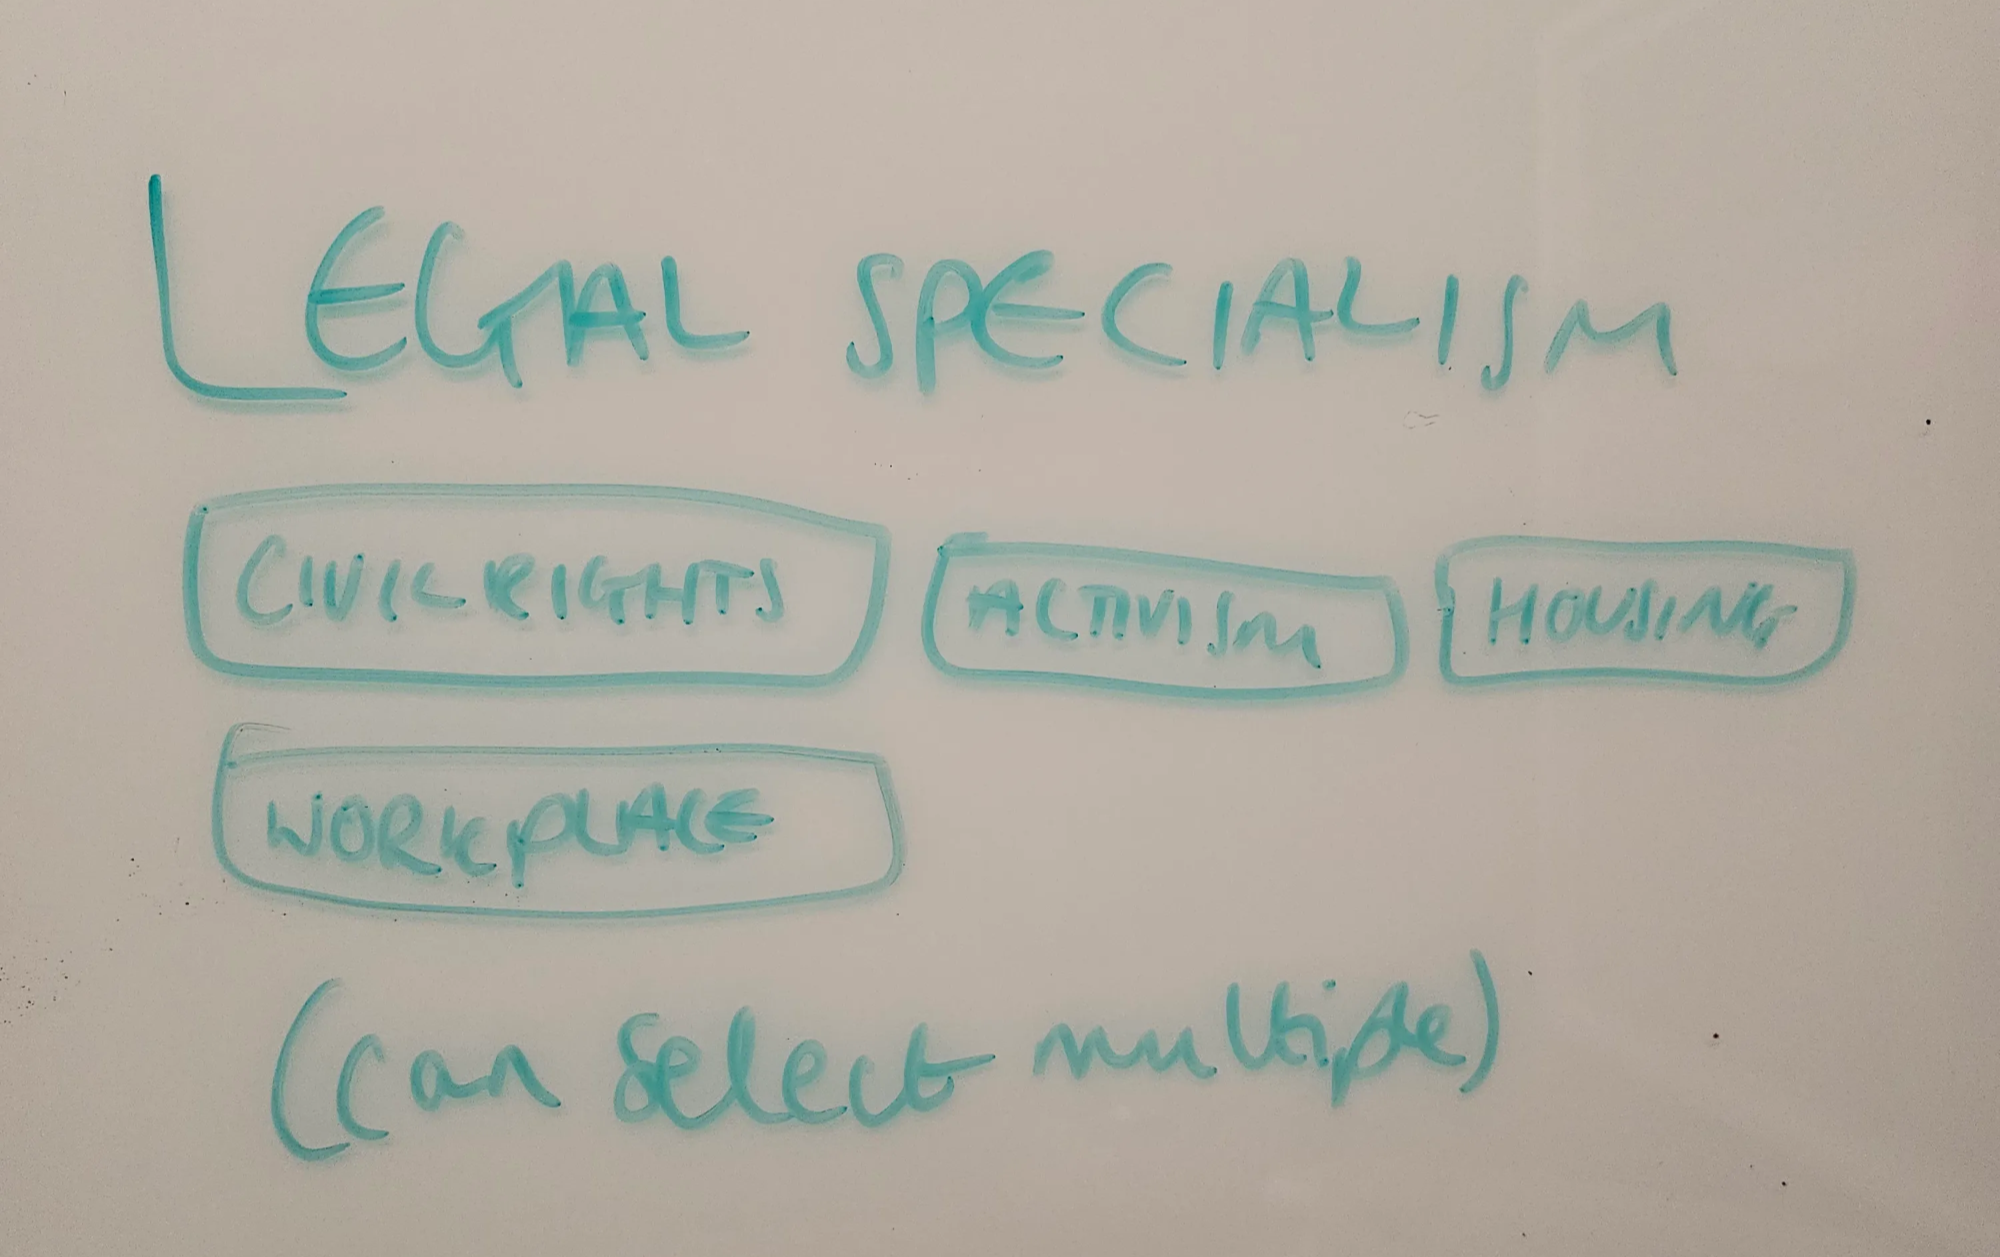 LEGAL SPECIALISM
CIVIL RIGHTS ACTIVISM HOUSING
WORKPLACE
(can select multiple)